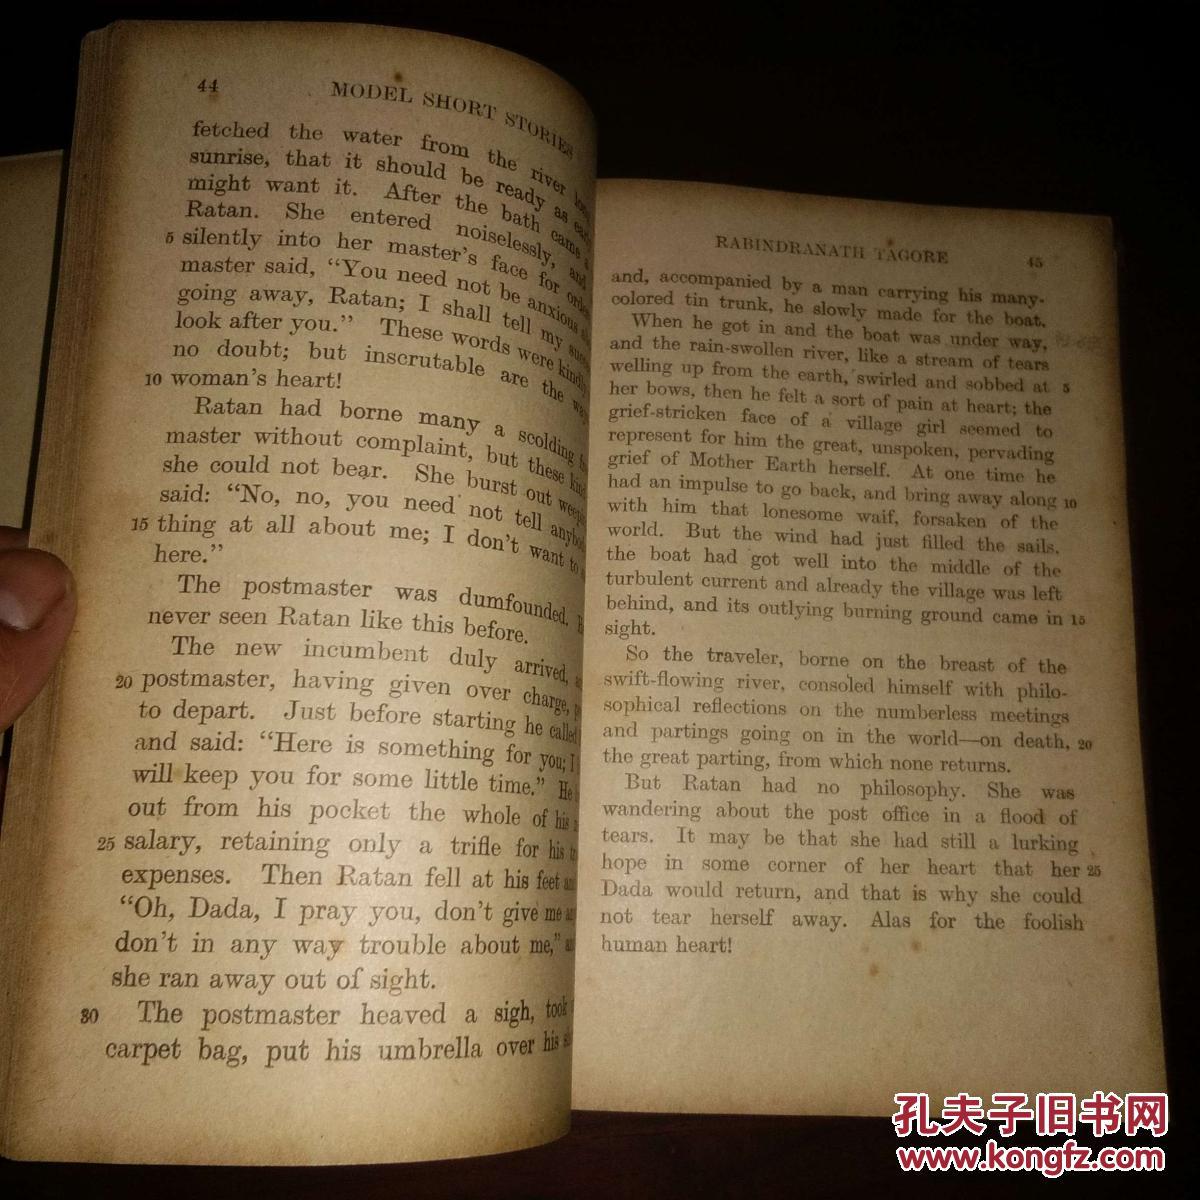 44
MODEL SHORT STORIES
fetched the water from the river
sunrise, that it should be ready as
might want it. After the bath came
Ratan. She entered noiselessly, and
5 silently into her master's face for
master said, “You need not be anxious
going away, Ratan; I shall tell my
look after you.” These words were kindly
no doubt; but inscrutable are the
10 woman's heart!
Ratan had borne many a scolding
master without complaint, but these
she could not bear. She burst out
said: “No, no, you need not tell
15 thing at all about me; I don't want to
here.”
The postmaster was dumfounded.
never seen Ratan like this before.
The new incumbent duly arrived,
20 postmaster, having given over charge,
to depart. Just before starting he called
and said: “Here is something for you; I
will keep you for some little time.” He
out from his pocket the whole of his
25 salary, retaining only a trifle for his
expenses. Then Ratan fell at his feet
“Oh, Dada, I pray you, don't give me
don't in any way trouble about me,”
she ran away out of sight.
30 The postmaster heaved a sigh, took
carpet bag, put his umbrella over his
RABINDRANATH TAGORE 45
and, accompanied by a man carrying his many-
colored tin trunk, he slowly made for the boat.
When he got in and the boat was under way,
and the rain-swollen river, like a stream of tears
welling up from the earth, swirled and sobbed at 5
her bows, then he felt a sort of pain at heart; the
grief-stricken face of a village girl seemed to
represent for him the great, unspoken, pervading
grief of Mother Earth herself. At one time he
had an impulse to go back, and bring away along 10
with him that lonesome waif, forsaken of the
world. But the wind had just filled the sails,
the boat had got well into the middle of the
turbulent current and already the village was left
behind, and its outlying burning ground came in 15
sight.
So the traveler, borne on the breast of the
swift-flowing river, consoled himself with philo-
sophical reflections on the numberless meetings
and partings going on in the world—on death, 20
the great parting, from which none returns.
But Ratan had no philosophy. She was
wandering about the post office in a flood of
tears. It may be that she had still a lurking
hope in some corner of her heart that her 25
Dada would return, and that is why she could
not tear herself away. Alas for the foolish
human heart!
孔夫子旧书网
www.kongfz.com